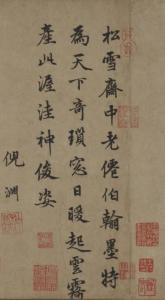 松雪齋中老僊伯翰墨特
為天下奇瑣窓日暖起雲霧
產此渥洼神俊姿
倪淵